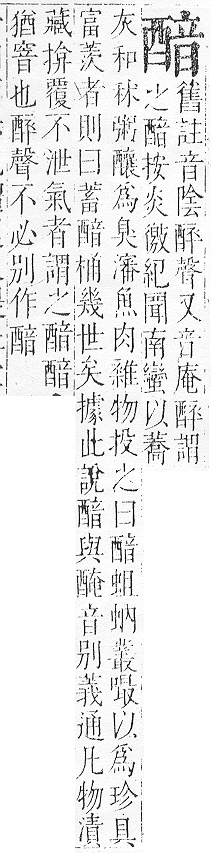 䤃舊註音陰醉聲又音庵醉謂
之䤃按炎徼紀聞南蠻以蕎
灰和秫粥釀爲臭瀋魚肉雜物投之曰䤃蛆蚋叢嘬以爲珍具
富羨者則曰蓄䤃桶幾世矣據此說䤃與醃音別義通凡物漬
藏揜覆不泄氣者謂之䤃䤃
猶窨也醉聲不必別作䤃